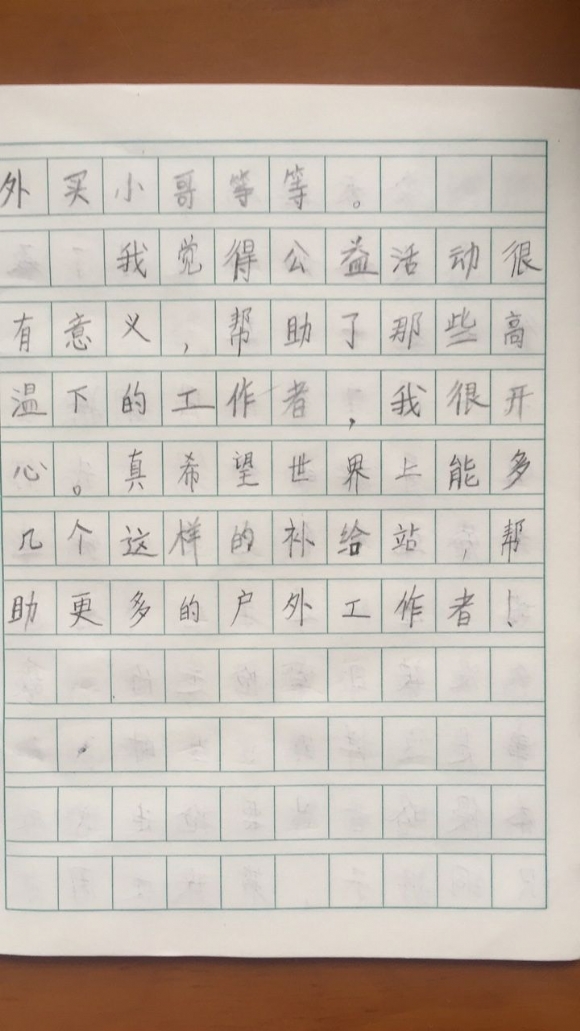 外买小哥等等。
我觉得公益活动很
有意义，帮助了那些高
温下的工作者，我很开
心。真希望世界上能多
几个这样的补给站，帮
助更多的户外工作者！